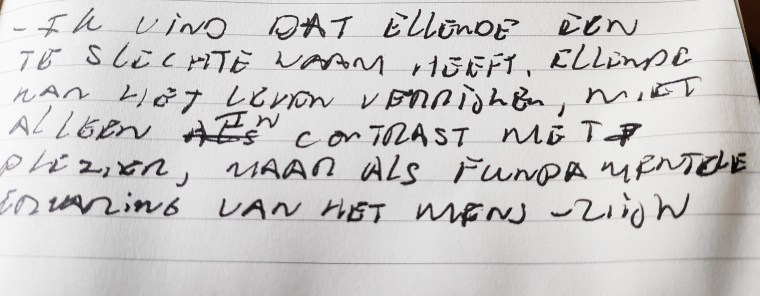 - IK VIND DAT ELLENDE EEN
TE SLECHTE NAAM HEEFT. ELLENDE
KAN HET LEVEN VERRIJKEN, NIET
ALLEEN IN CONTRAST MET
PLEZIER, MAAR ALS FUNDAMENTELE
ERVARING VAN HET MENS-ZIJN